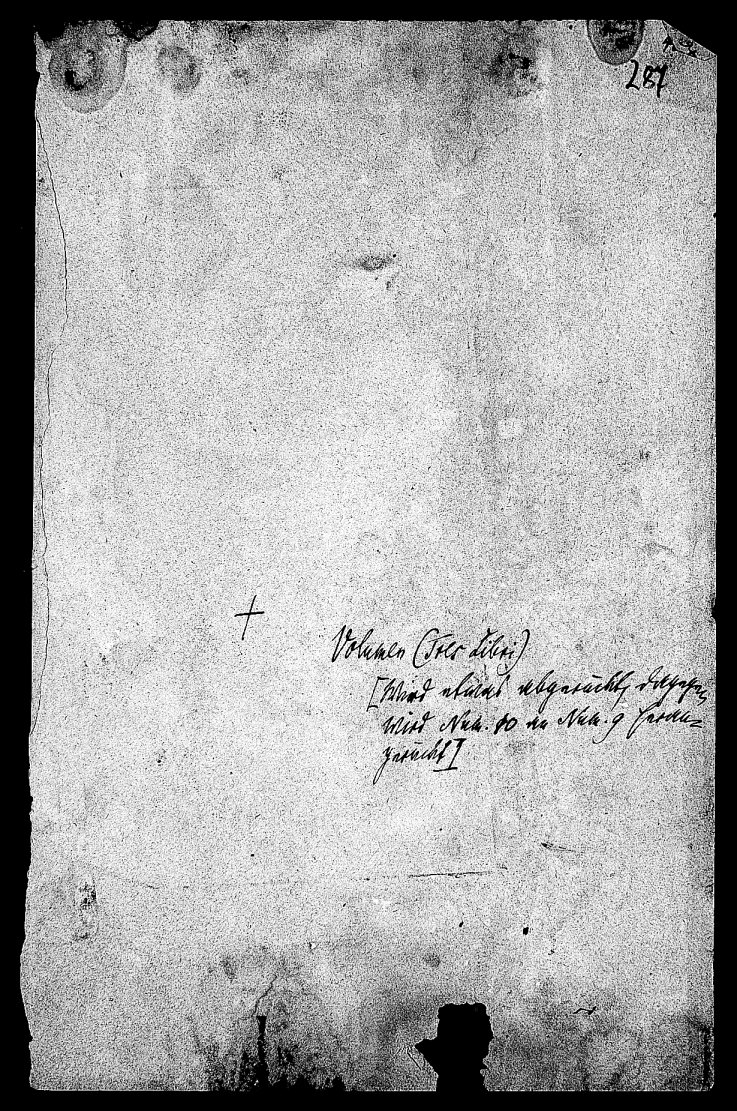 287
Volumen (Tres Libri)
[Wird etwas abgerückt, dagegen
wird Num. 10 an Num. 9 heran-
gerückt]